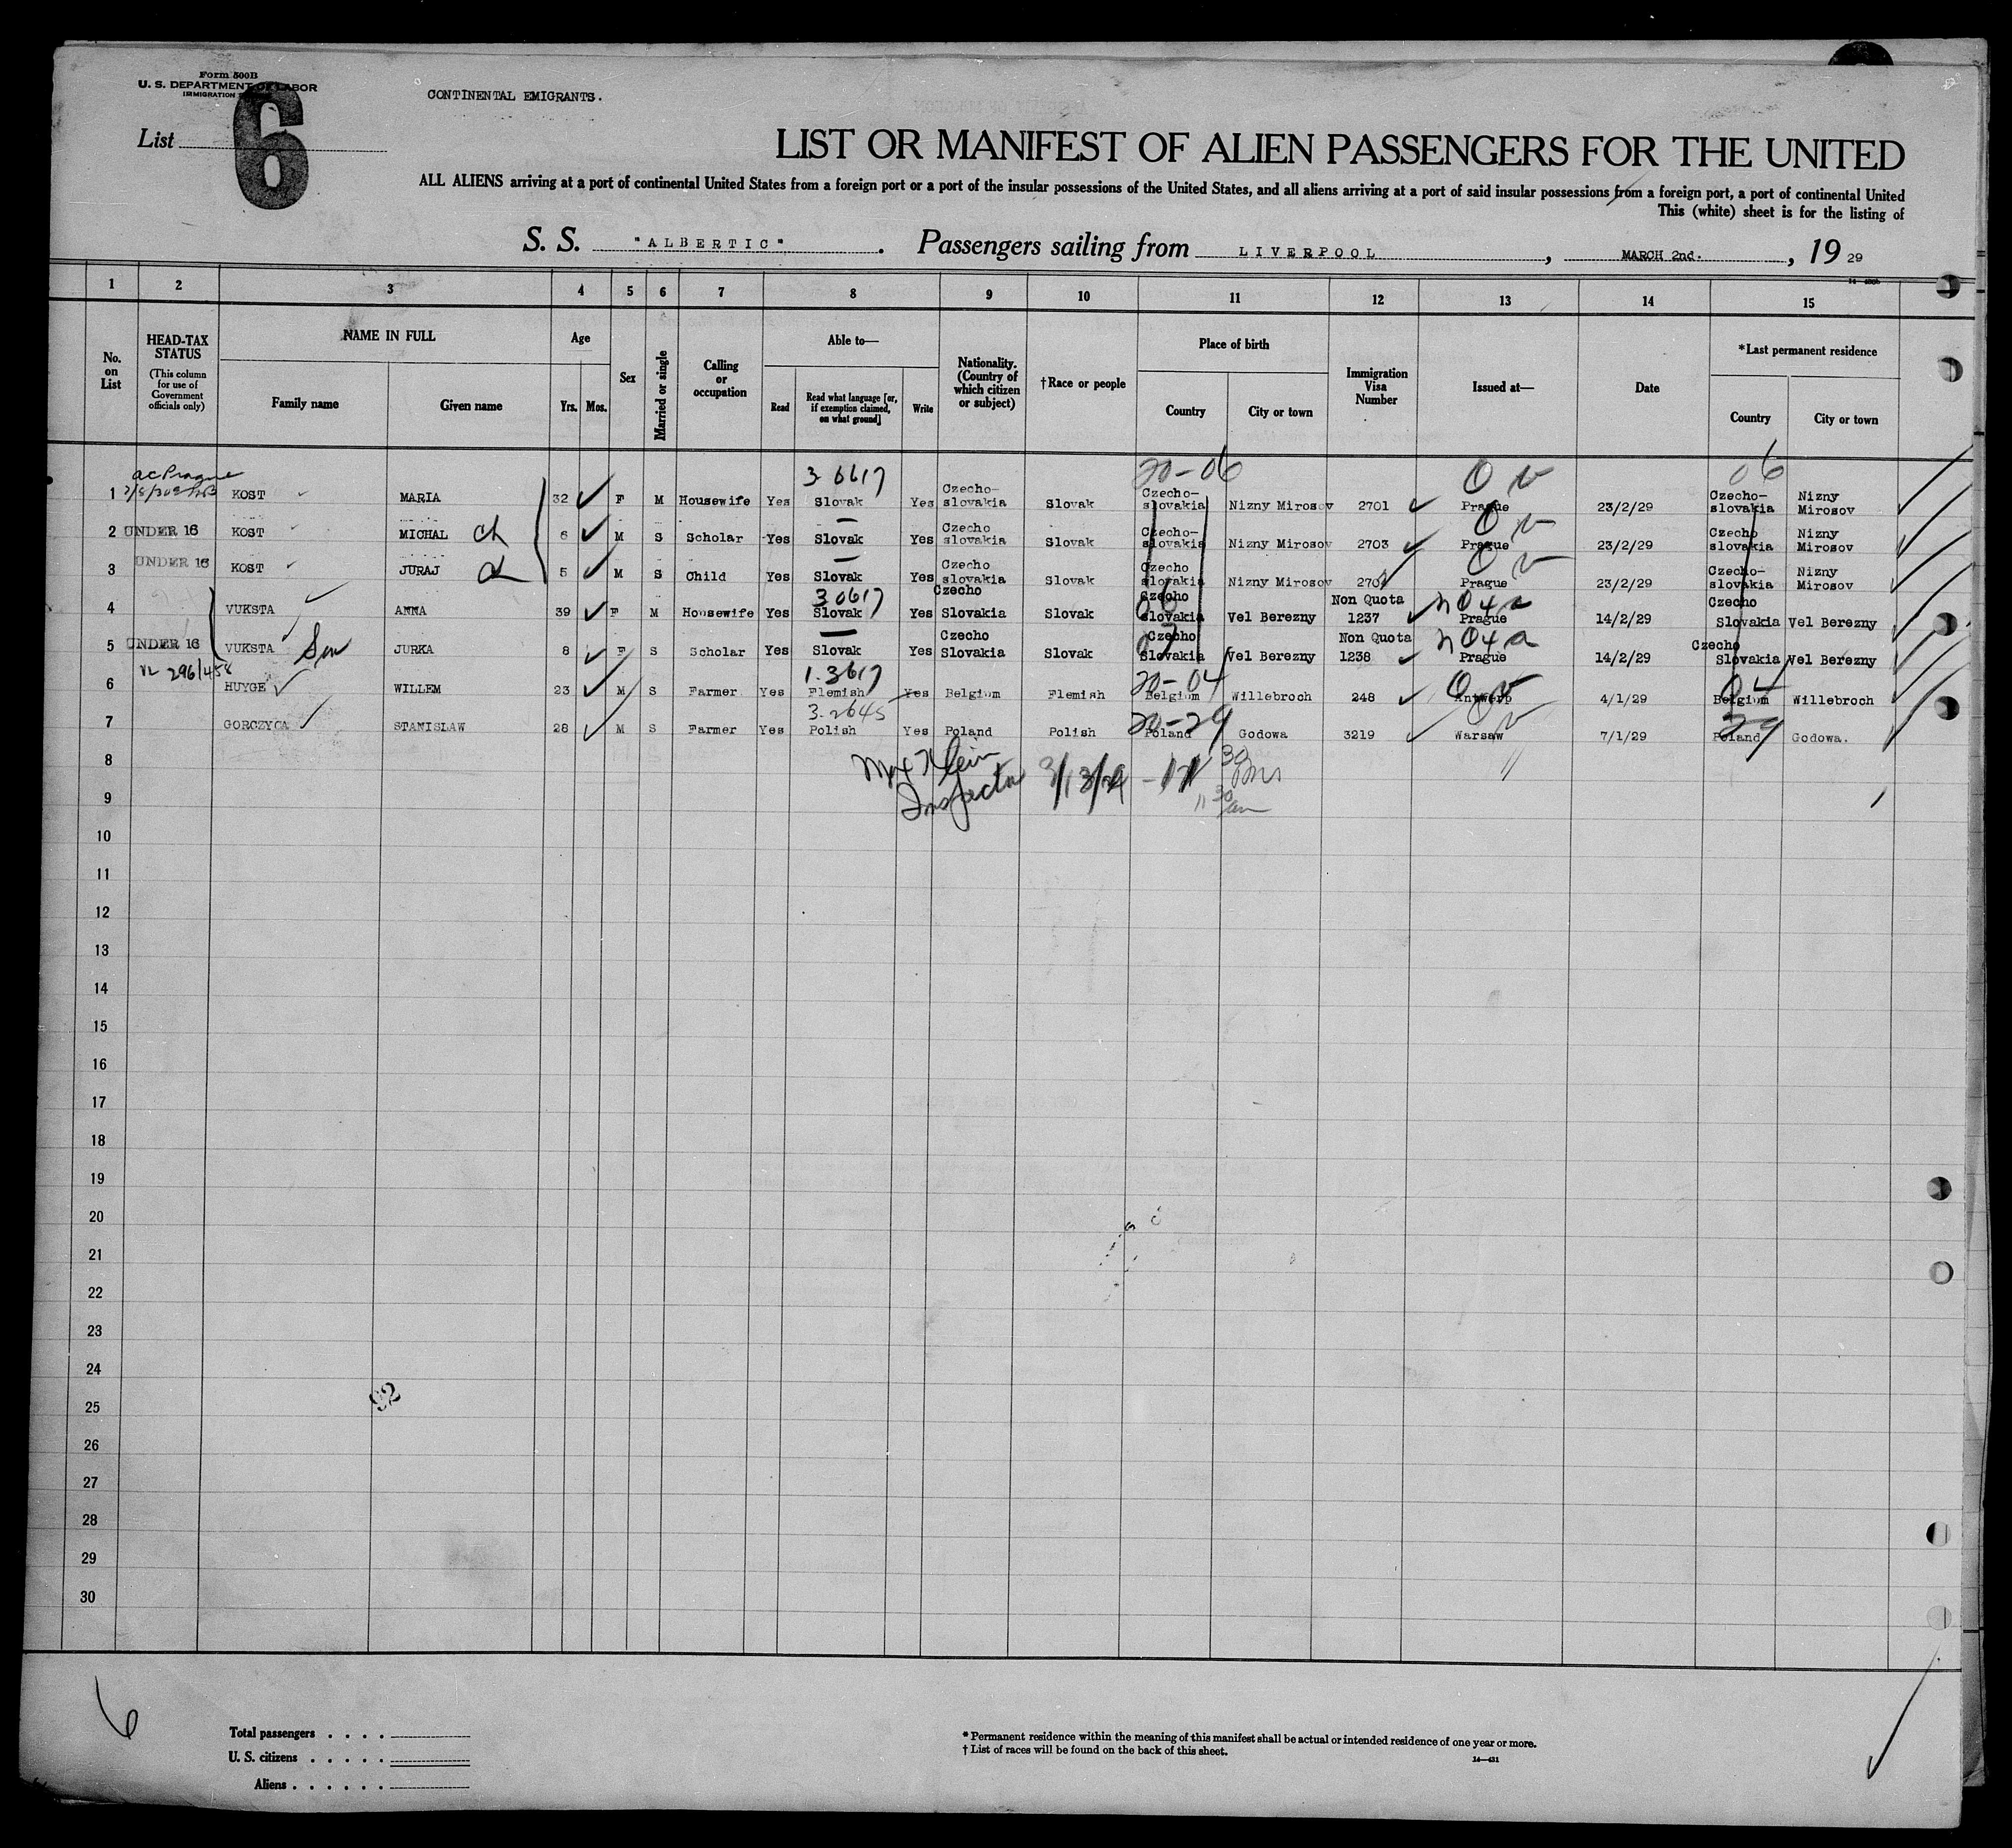 Form 500B
U. S. DEPARTMENT OF LABOR
IMMIGRATION
CONTINENTAL EMIGRANTS.
List 6
LIST OR MANIFEST OF ALIEN PASSENGERS FOR THE UNITED
ALL ALIENS arriving at a port of continental United States from a foreign port or a port of the insular possessions of the United States, and all aliens arriving at a port of said insular possessions from a foreign port, a port of continental United
This (white) sheet is for the listing of
S. S. "ALBERTIC". Passengers sailing from LIVERPOOL, MARCH 2nd., 19 29
1 2 3 4 5 6 7 8 9 10 11 12 13 14 15
No. on List
HEAD-TAX STATUS
(This column for use of Government officials only)
NAME IN FULL
Family name
Given name
Age
Yrs. Mos.
Sex
Married or single
Calling or occupation
Able to—
Read
Read what language [or, if exemption claimed, on what ground]
Write
Nationality. (Country of which citizen or subject)
†Race or people
Place of birth
Country
City or town
Immigration Visa Number
Issued at—
Date
*Last permanent residence
Country
City or town
3 0617 20-06 06
1 KOST MARIA 32 F M Housewife Yes Slovak Yes Czecho-slovakia Slovak Czecho-slovakia Nizny Mirosov 2701 Prague 23/2/29 Czecho-slovakia Nizny Mirosov
2 UNDER 16 KOST MICHAL ch 6 M S Scholar Yes Slovak Yes Czecho slovakia Slovak Czecho-slovakia Nizny Mirosov 2703 Prague 23/2/29 Czecho slovakia Nizny Mirosov
3 UNDER 16 KOST JURAJ ch 5 M S Child Yes Slovak Yes Czecho slovakia Slovak Czecho slovakia Nizny Mirosov Prague 23/2/29 Czecho-slovakia Nizny Mirosov
3 0617
4 VUKSTA ANNA 39 F M Housewife Yes Slovak Yes Czecho Slovakia Slovak Czecho Slovakia Vel Berezny Non Quota 1237 Prague 14/2/29 Czecho Slovakia Vel Berezny
5 UNDER 16 VUKSTA JURKA 8 F S Scholar Yes Slovak Yes Czecho Slovakia Slovak Czecho Slovakia Vel Berezny Non Quota 1238 Prague 14/2/29 Czecho Slovakia Vel Berezny
296/458 1.3617 20-04 04
6 HUYGE WILLEM 23 M S Farmer Yes Flemish Yes Belgium Flemish Belgium Willebroch 248 Antwerp 4/1/29 Belgium Willebroch
3.2645 20-29 29
7 GORCZYCA STANISLAW 28 M S Farmer Yes Polish Yes Poland Polish Poland Godowa 3219 Warsaw 7/1/29 Poland Godowa.
8
Max Klein
Inspector
9
10
11
12
13
14
15
16
17
18
19
20
21
22
23
24
92
25
26
27
28
29
30
6
Total passengers . . . .
U. S. citizens . . . . .
Aliens . . . . . .
* Permanent residence within the meaning of this manifest shall be actual or intended residence of one year or more.
† List of races will be found on the back of this sheet.
14—431